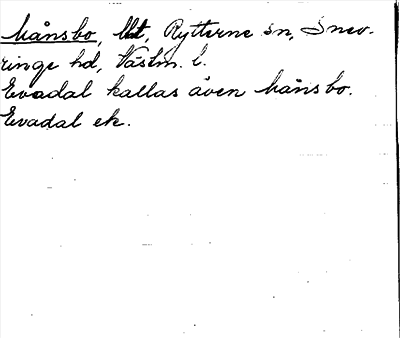 Månsbo, Ust, Rytterne sn, Snev-
ringe hd, Västm. l.
Evadal kallas även Månsbo.
Evadal ek.